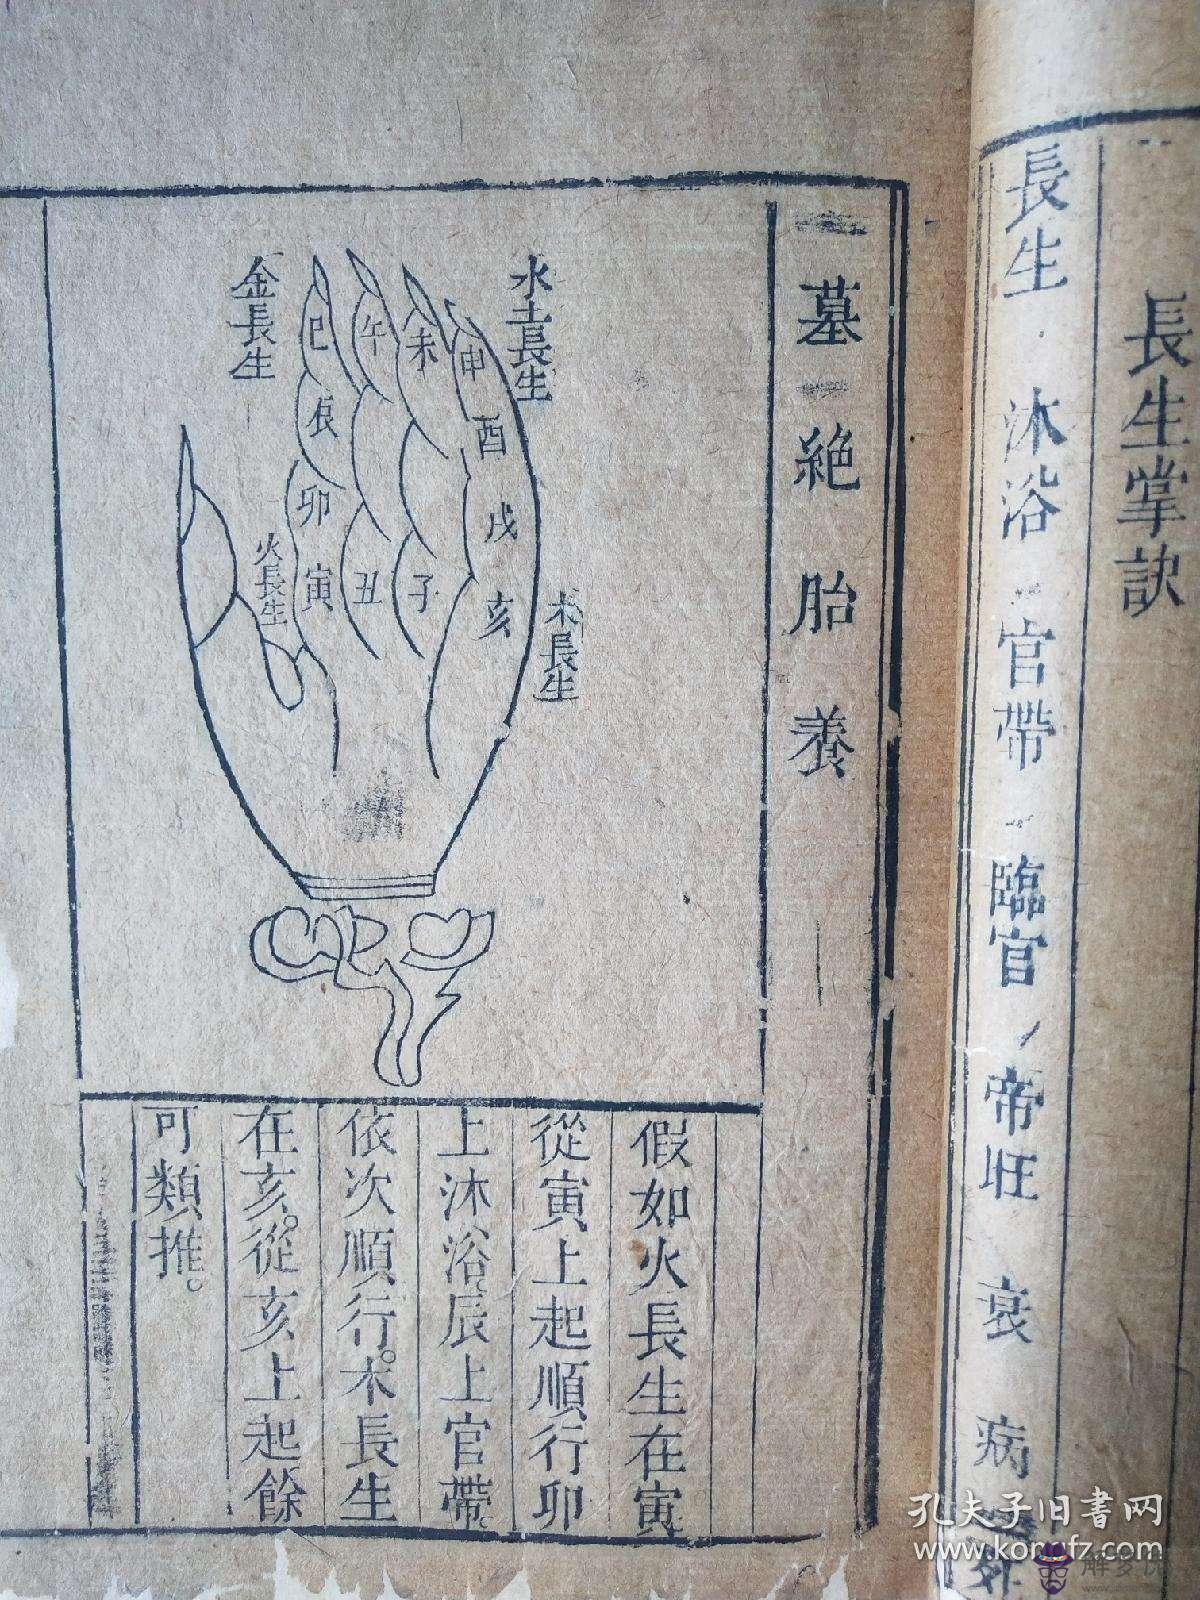 長生掌訣
長生 沐浴 官帶 臨官 帝旺 衰 病
墓 絕 胎 養
水土長生
金長生
巳
午
未
申
辰
酉
卯
戌
火長生
寅
丑
子
亥
木長生
假如火長生在寅
從寅上起順行卯
上沐浴。辰上官帶。
依次順行。木長生
在亥。從亥上起餘
可類推。
孔夫子旧书网
www.kongfz.com